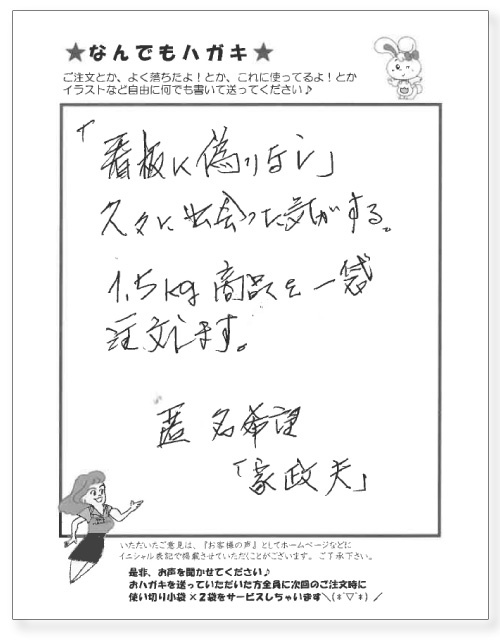 ★なんでもハガキ★
ご注文とか、よく落ちたよ！とか、これに使ってるよ！とか
イラストなど自由に何でも書いて送ってください♪
「看板に偽りなし」
久々に出会った気がする。
1.5kg商品を一袋
注文します。
匿名希望
「家政夫」
いただいたご意見は、『お客様の声』としてホームページなどに
イニシャル表記で掲載させていただくことがございます。ご了承下さい。
是非、お声を聞かせてください♪
おハガキを送っていただいた方全員に次回のご注文時に
使い切り小袋×2袋をサービスしちゃいます＼(*^▽^*)／